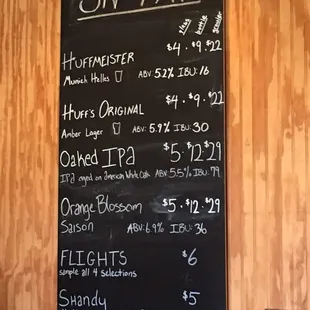 ON TAP
glass bottle growler
HUFFMEISTER $4 · $9 · $22
Munich Helles ABV: 5.2% IBU: 16
HUFF'S ORIGINAL $4 · $9 · $22
Amber Lager ABV: 5.9% IBU: 30
Oaked IPA $5 · $12 · $29
IPA aged on American White Oak ABV: 5.5% IBU: 79
Orange Blossom $5 · $12 · $29
Saison ABV: 6.9% IBU: 36
FLIGHTS $6
sample all 4 selections
SHANDY $5